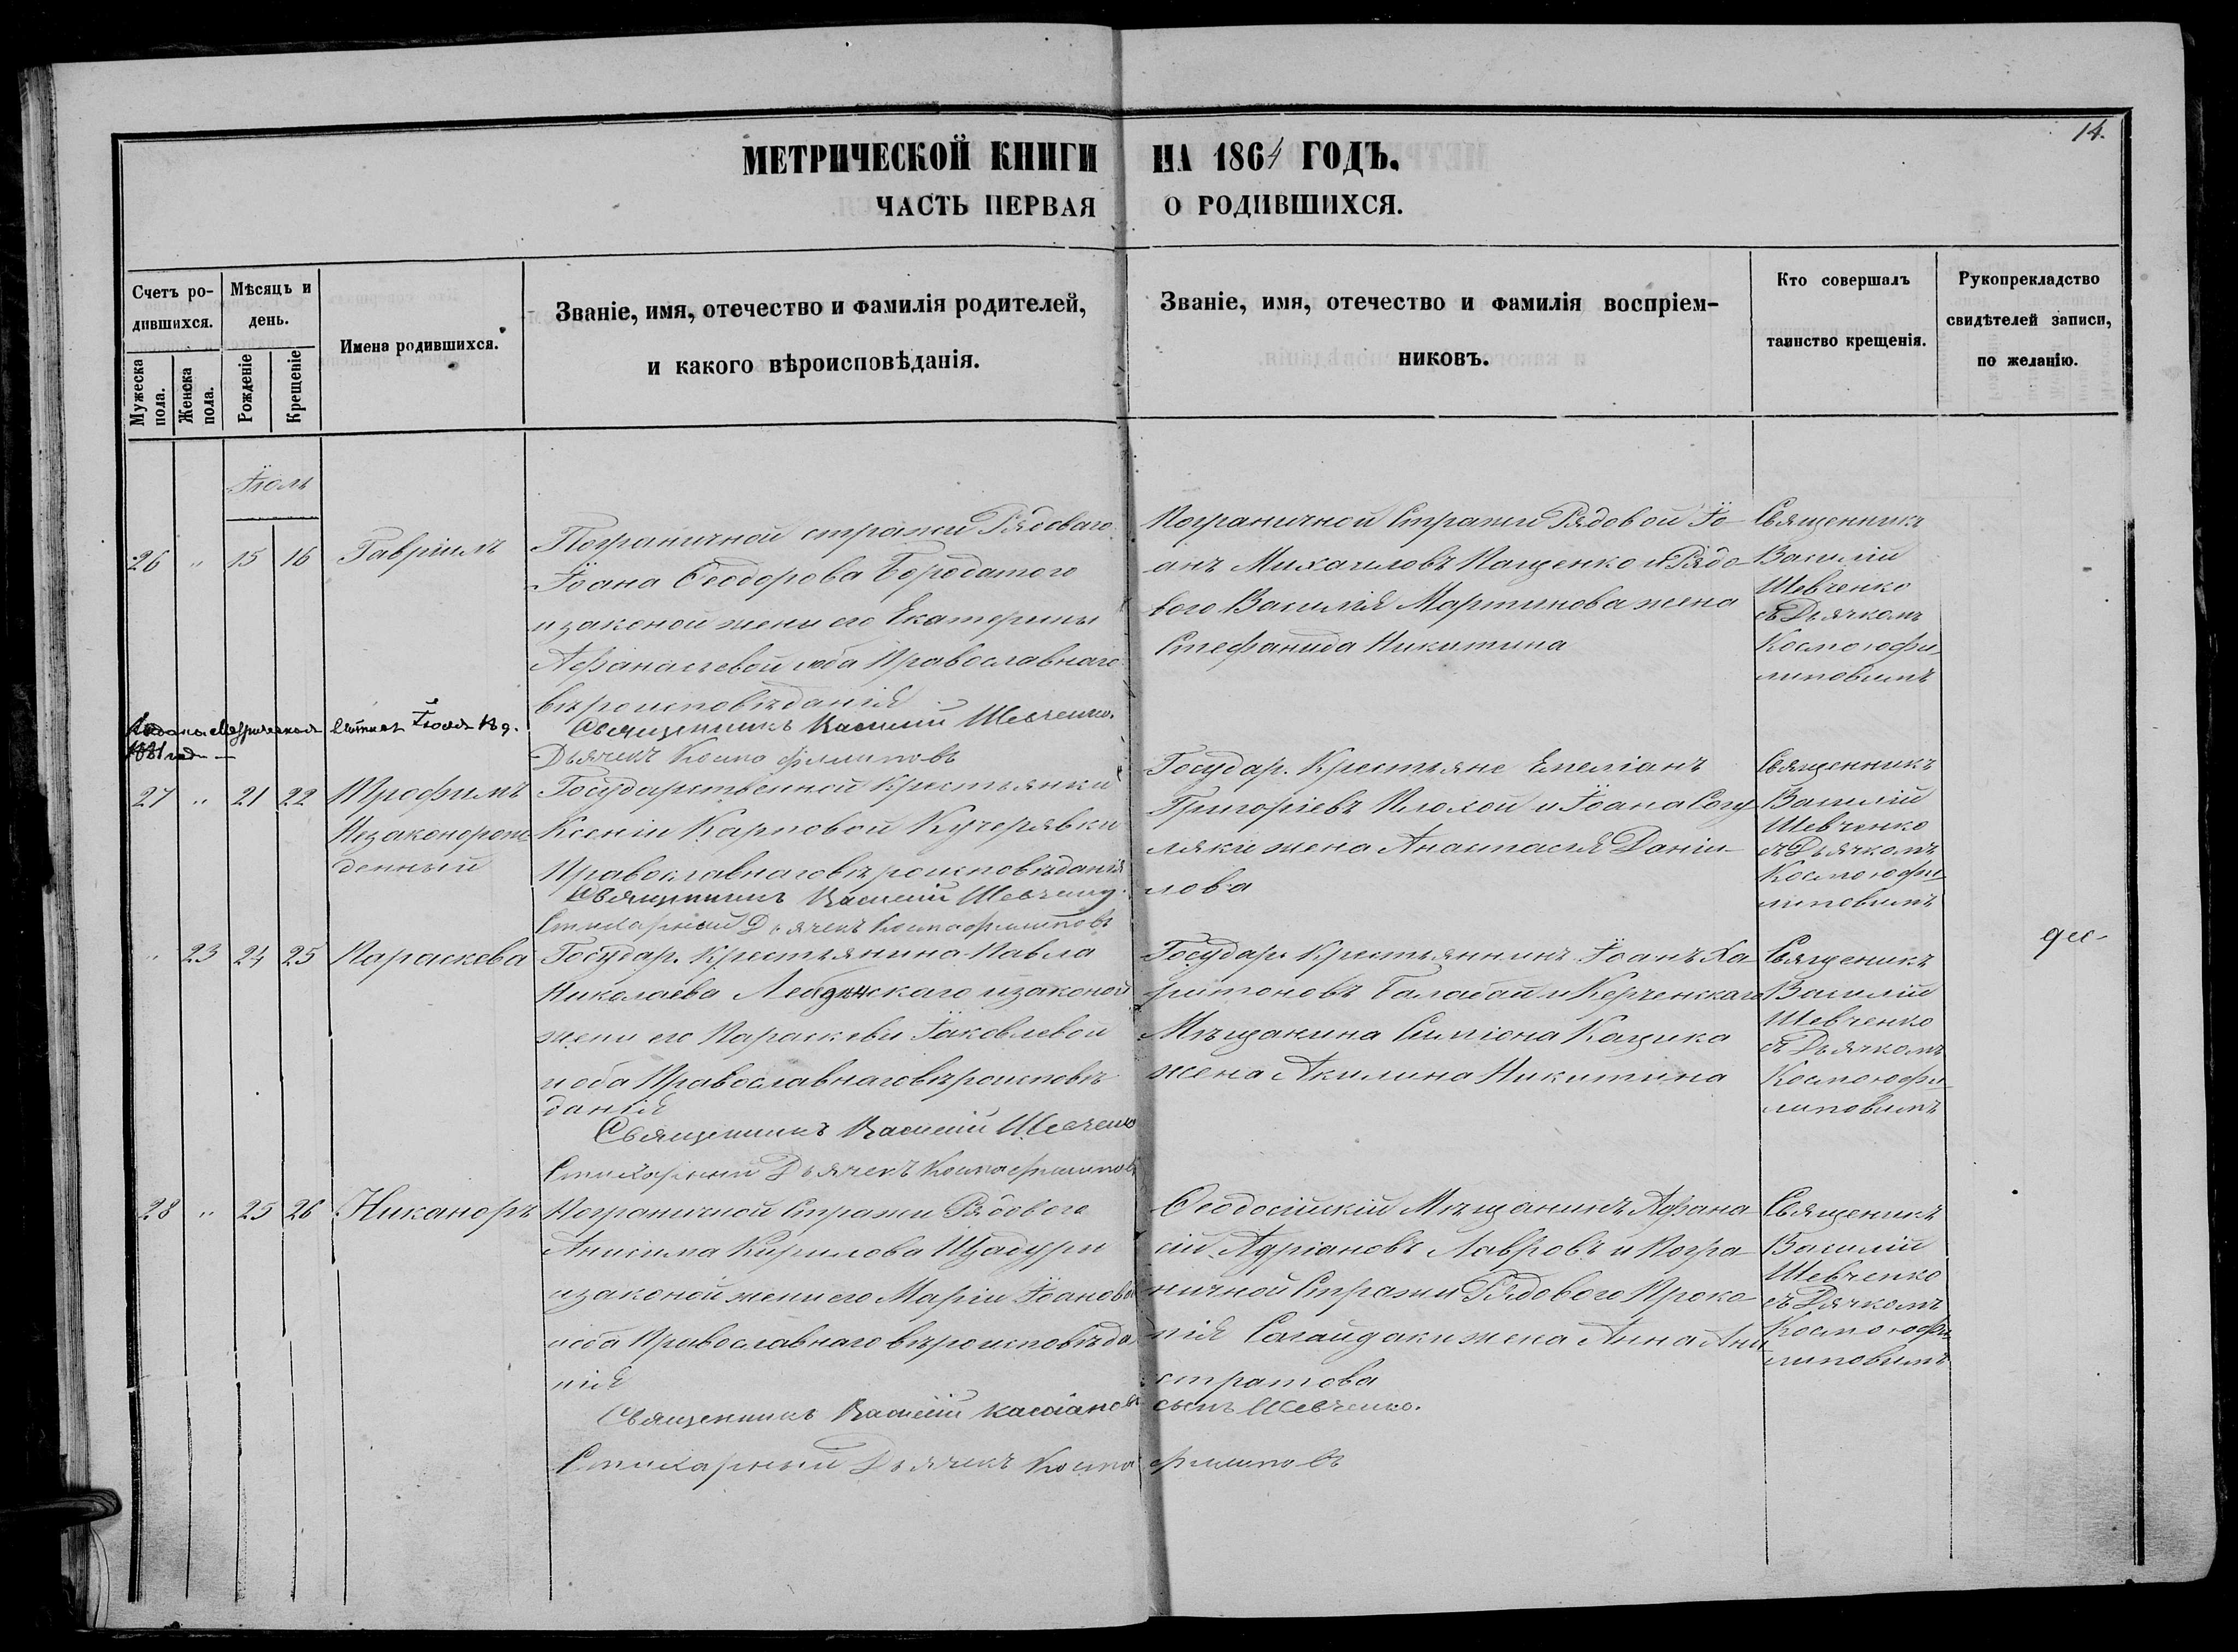 14.
МЕТРИЧЕСКОЙ КНИГИ НА 1864 ГОДЪ.
ЧАСТЬ ПЕРВАЯ О РОДИВШИХСЯ.
Счетъ ро-
дившихся.
Мужеска пола.
Женска пола.
Мѣсяцъ и
день.
Рожденіе
Крещеніе
Имена родившихся.
Званіе, имя, отечество и фамилія родителей,
и какого вѣроисповѣданія.
Званіе, имя, отечество и фамилія воспріем-
никовъ.
Кто совершалъ
таинство крещенія.
Рукоприкладство
свидѣтелей записи,
по желанію.
Іюль
26 " 15 16 Гавріилъ
Пограничной стражи Рядоваго
Іоана Ѳеодорова Бородатого
и законой жени его Екатерины
Афанасьевой оба Православнаго
вѣроисповѣданія
Священникъ Василій Шевченко.
Дьячекъ Косма Филиповъ
Пограничной Стражи Рядовой Іо-
анъ Михаиловъ Пащенко и Рядо-
вого Василія Мартинова жена
Стефанида Никитина
Священникъ
Василій
Шевченко
съ Дьячкомъ
Космою Фи-
липовимъ
Іюля 18 д.
27 " 21 22 Трофимъ
Незаконорож
денный
Государственной Крестьянки
Ксеніи Карповой Кучерявки
Православнаго вѣроисповѣданія
Священникъ Василій Шевченко.
Стихарный Дьячекъ Косма Филиповъ
Государ. Крестьяне Емеліанъ
Григоріевъ Плохой и Іоана
жена Анастасія Даніи-
лова
Священникъ
Василій
Шевченко
съ Дьячкомъ
Космою Фи-
липовимъ
" 23 24 25 Параскева
Государ. Крестьянина Павла
Николаева и законой
жени его Параскеви Іаковлевой
и оба Православнаго вѣроисповѣ-
данія
Священникъ Василій Шевченко
Стихарный Дьячекъ Косма Филиповъ
Государ. Крестьянинъ Іоанъ Ха-
ритоновъ Балабай и Керченскаго
Мѣщанина Симіона Кащика
жена Акилина Никитина
Священикъ
Василій
Шевченко
съ Дьячкомъ
Космою Фи-
липовимъ
28 " 25 26 Никаноръ
Пограничной Стражи Рядового
Анисима Кирилова
и законой жени его Маріи Іоановой
и оба Православнаго вѣроисповѣда-
нія
Священникъ Василій Кассіановъ сынъ Шевченко.
Стихарный Дьячекъ Косма Филиповъ
Ѳеодосійскій Мѣщанинъ Афана-
сій Адріановъ Лавровъ и Погра-
ничной Стражи Рядового Проко-
пія Сагайдаки жена Анна
стратова
Священикъ
Василій
Шевченко
съ Дячкомъ
Космою Фи-
липовимъ